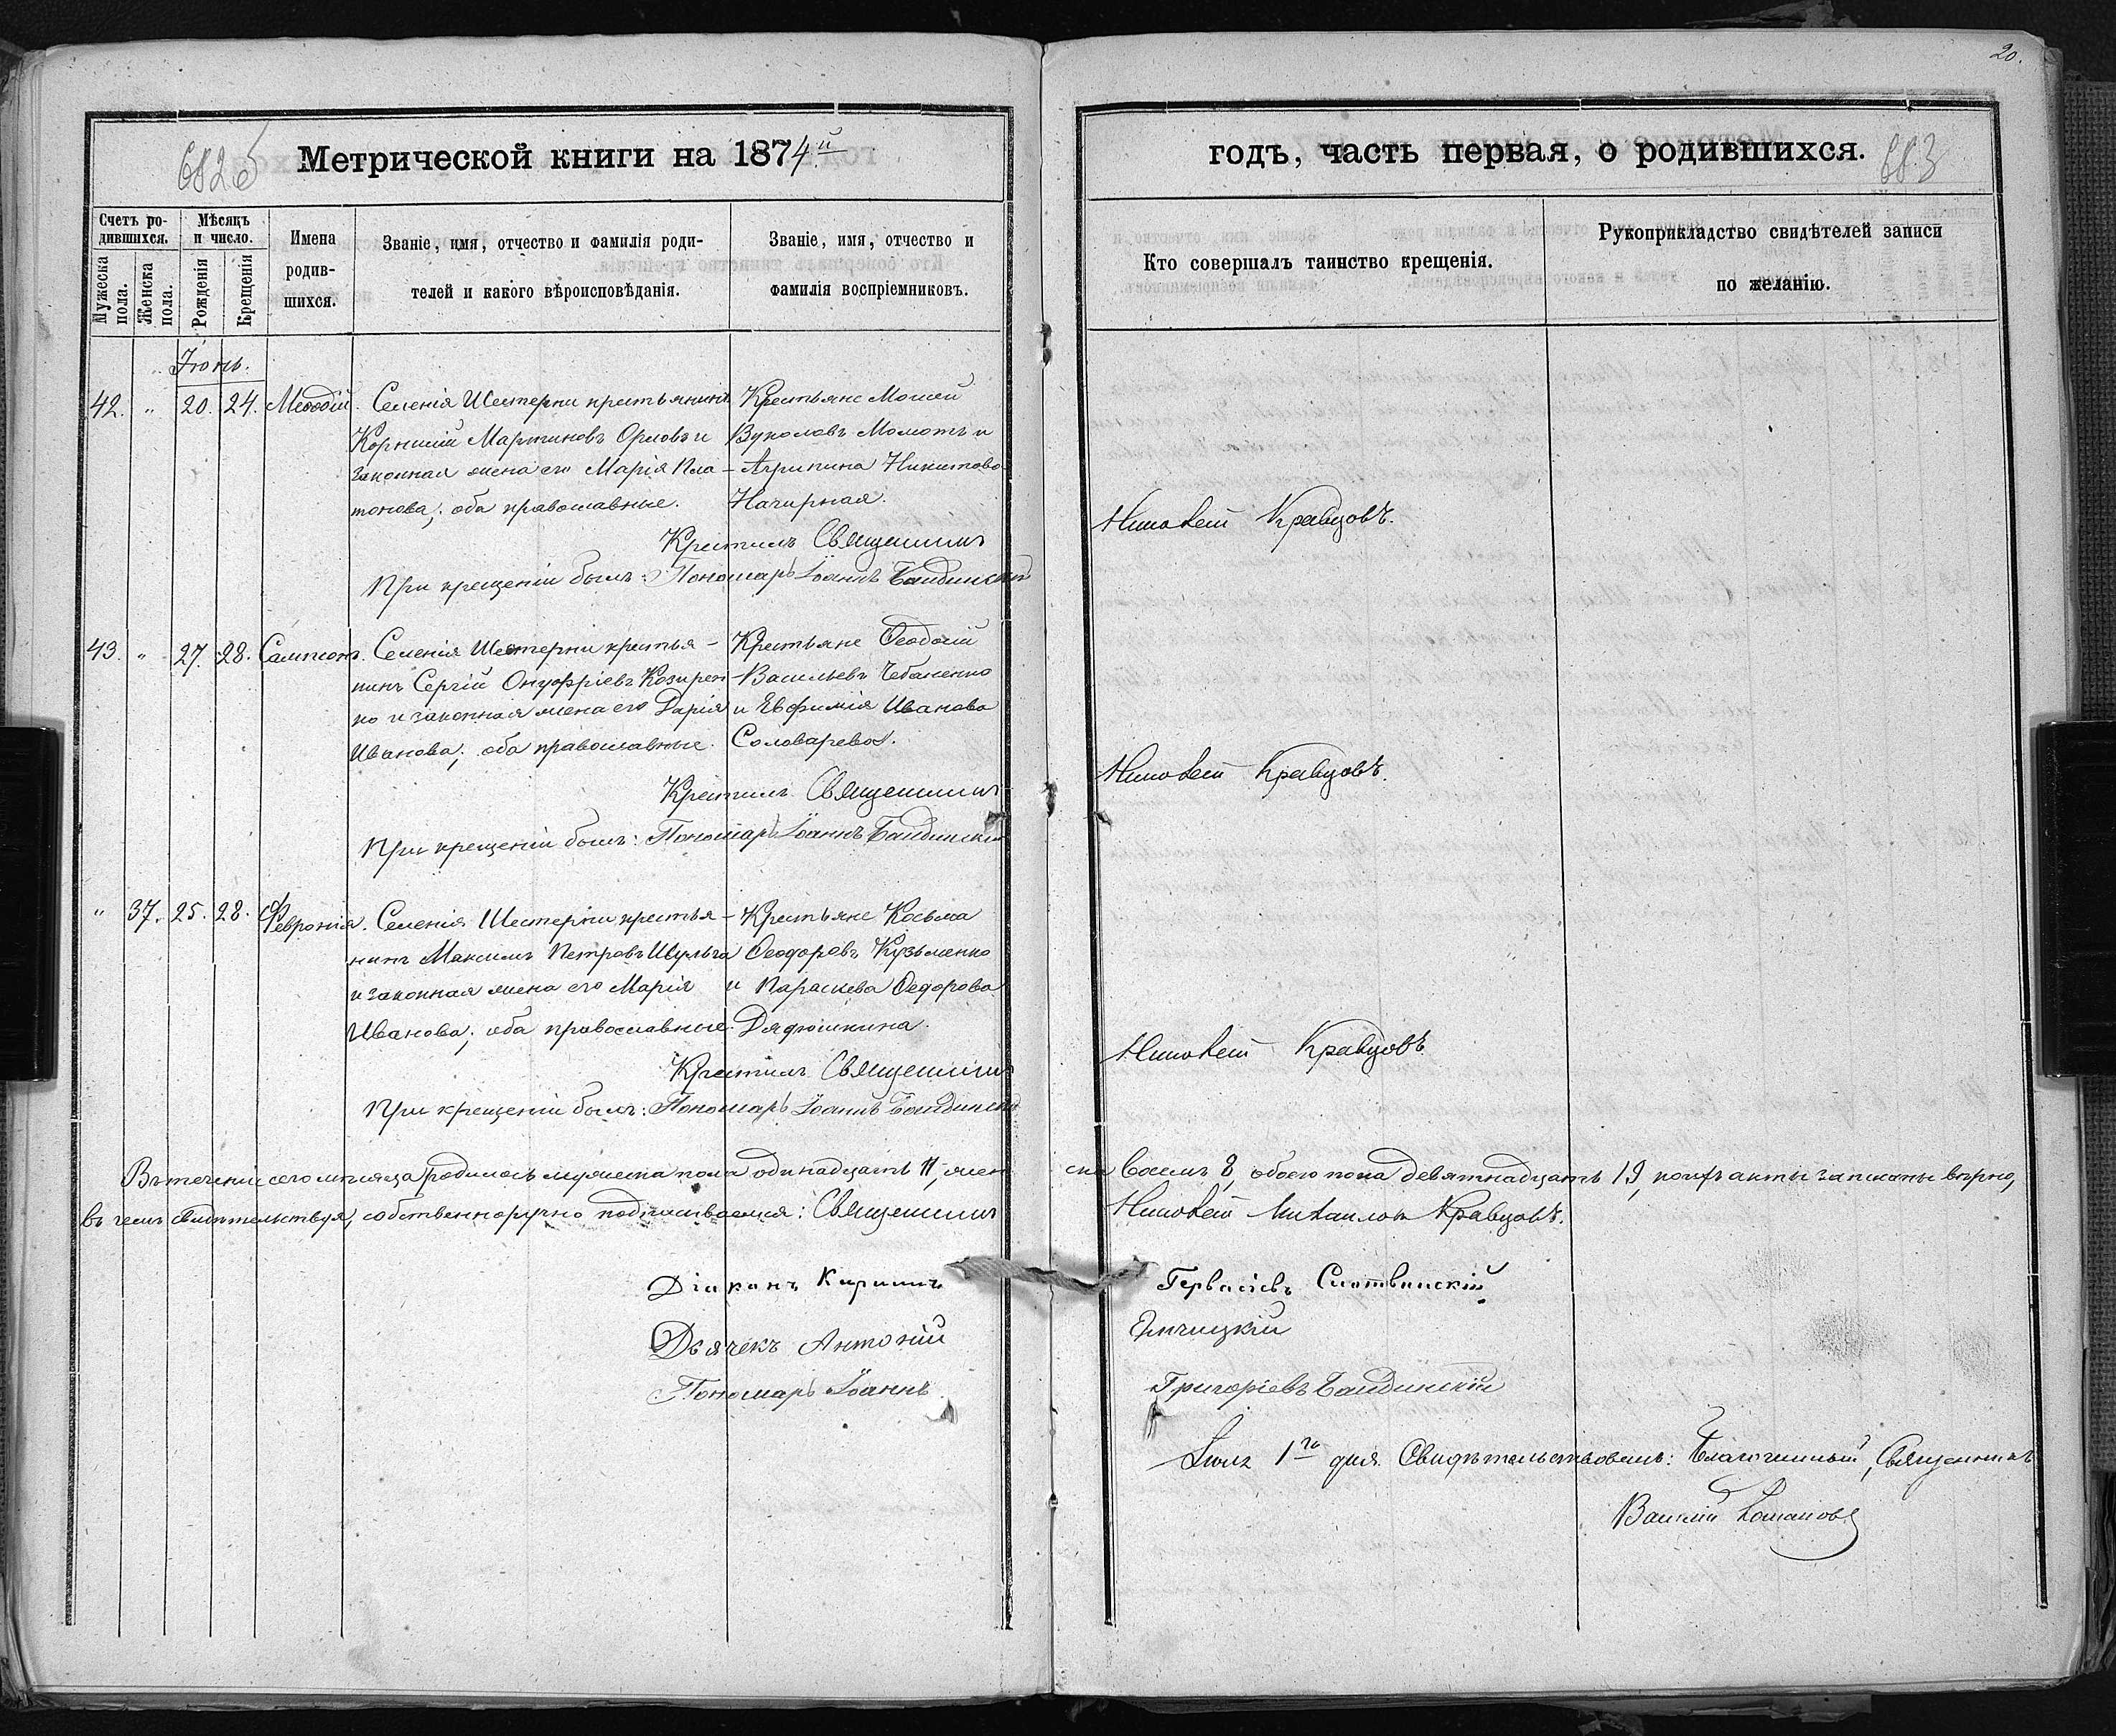 20.
682 б
683
Метрической книги на 1874й
годъ, часть первая, о родившихся.
Счетъ ро-
дившихся.
Мужеска пола.
Женска пола.
Мѣсяцъ
и число.
Рожденія
Крещенія
Имена
родив-
шихся.
Званіе, имя, отчество и фамилія роди-
телей и какого вѣроисповѣданія.
Званіе, имя, отчество и
фамилія воспріемниковъ.
Кто совершалъ таинство крещенія.
Рукоприкладство свидѣтелей записи
по желанію.
Іюнь.
42. " 20. 24. Меѳодій. Селенія Шестерни крестьянинъ
Корнилій Мартиновъ Орловъ и
законная жена его Марія Пла-
тонова; оба православные.
Крестьяне Моисей
Вуколовъ Момотъ и
Агрипина Никитова
Начирная.
Крестилъ Священникъ
Николай Кравцовъ.
При крещеніи былъ: Пономарь Іоаннъ
43. " 27. 28. Сампсонъ. Селенія Шестерни крестья-
нинъ Сергій Онуфріевъ Козирен-
ко и законная жена его Дарія
Иванова; оба православные.
Крестьяне Ѳеодосій
Васильевъ Чебаненко
и Евфимія Иванова
Соловарева.
Крестилъ Священникъ
Николай Кравцовъ.
При крещеніи былъ: Пономарь Іоаннъ
" 37. 25. 28. Февронія. Селенія Шестерни крестья-
нинъ Максимъ Петровъ Шульга
и законная жена его Марія
Иванова; оба православные.
Крестьяне Косьма
Ѳеодоровъ Кузьменко
и Параскева Ѳедорова
Дядюшкина.
Крестилъ Священникъ
Николай Кравцовъ
При крещеніи былъ: Пономарь Іоаннъ
Въ теченіи сего мѣсяца родилось мужеска пола одинадцать 11, жен-
ска восемь 8, обоего пола девятнадцать 19, коихъ акты записаны вѣрно,
въ чемъ свидѣтельствуя, собственноручно подписываемся: Священникъ
Николай Михаиловъ Кравцовъ.
Діаконъ Кирилъ
Гервасіевъ Слотвинскій.
Дьячекъ Антоній
Пономарь Іоаннъ
Григоріевъ
Іюля 1го дня. Свидѣтельствовалъ: Благочинный, Священникъ